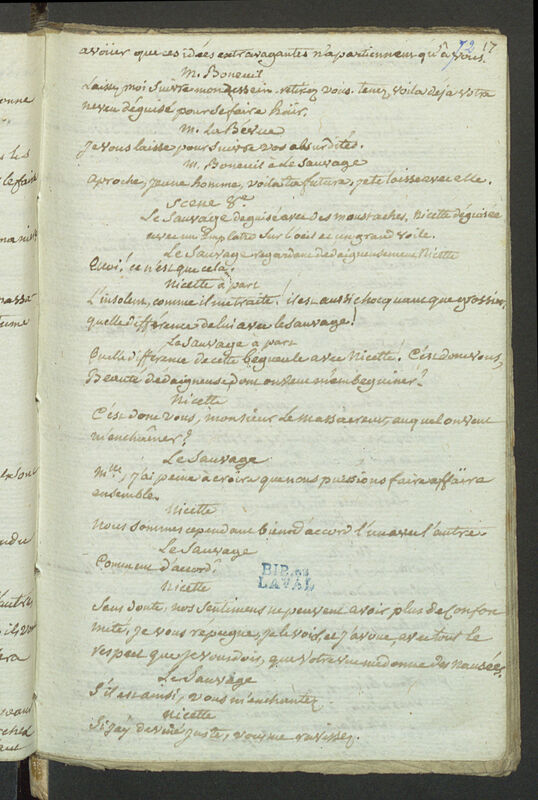 72 17
avoüer que ces idées extravagantes n'apartiennent qu'à vous.
M. Boneuil
Laissez moi suivre mon dessein. retirez vous. tenez, voila deja votre
neveu déguisé pour se faire haïr.
M. La Bévue
je vous laisse poursuivre vos absurdités.
M. Boneuil à Le Sauvage
aproche, jeune homme, voila ta future, je te laisse avec elle.
Scene 8e
Le Sauvage déguisé avec des moustaches, Nicette déguisée
avec un Emplatre sur l'oeil et un grand voile.
Le Sauvage regardant dedaigneusement Nicette
Quoi! ce n'est que cela,
Nicette à part
L'insolent, comme il me traite! il est aussi chocquant que grossier,
quelle difference de lui avec le Sauvage!
Le Sauvage à part
Quelle difference de cette begueule avec Nicette! C'est donc vous,
Beauté dedaigneuse dont on veut m'embeguiner?
Nicette
C'est donc vous, monsieur le massacreur, auquel on veut
m'enchaîner?
Le Sauvage
Mlle, j'ai peine à croire que nous puissions faire affaire
ensemble.
Nicette
Nous sommes cependant bien d'accord l'un avec l'autre.
Le Sauvage
Comment d'accord?
Nicette
Sans doute, nos sentimens ne peuvent avoir plus de confor
mité, je vous repugne, je le vois, et j'avoue, avec tout le
respect que je vous dois, que votre vue me donne des nausées.
Le Sauvage
S'il est ainsi, vous m'enchantez
Nicette
Si j'ay deviné juste, vous me ravissez.
BIB. DE
LAVAL